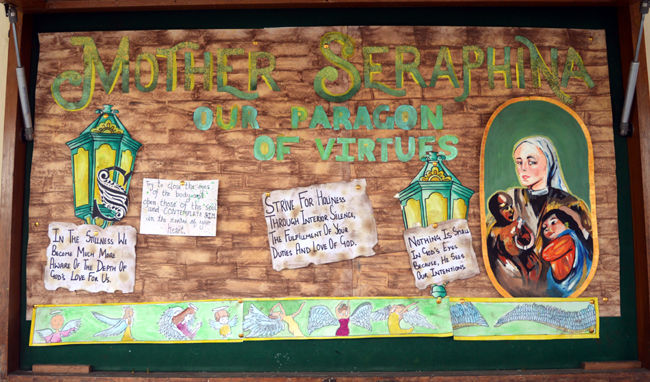 MOTHER SERAPHINA
OUR PARAGON
OF VIRTUES
IN THE STILLNESS WE
BECOME MUCH MORE
AWARE OF THE DEPTH OF
GOD'S LOVE FOR US.
Try to close the eyes
of the body and
open those of the soul
and CONTEMPLATE HIM
in the centre of your
heart.
STRIVE FOR HOLINESS
THROUGH INTERIOR SILENCE,
THE FULFILLMENT OF YOUR
DUTIES AND LOVE OF GOD.
NOTHING IS SMALL
IN GOD'S EYES
BECAUSE, HE SEES
OUR INTENTIONS